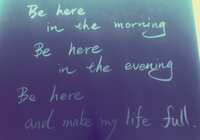 Be here
in the morning
Be here
in the evening
Be here
and make my life full.